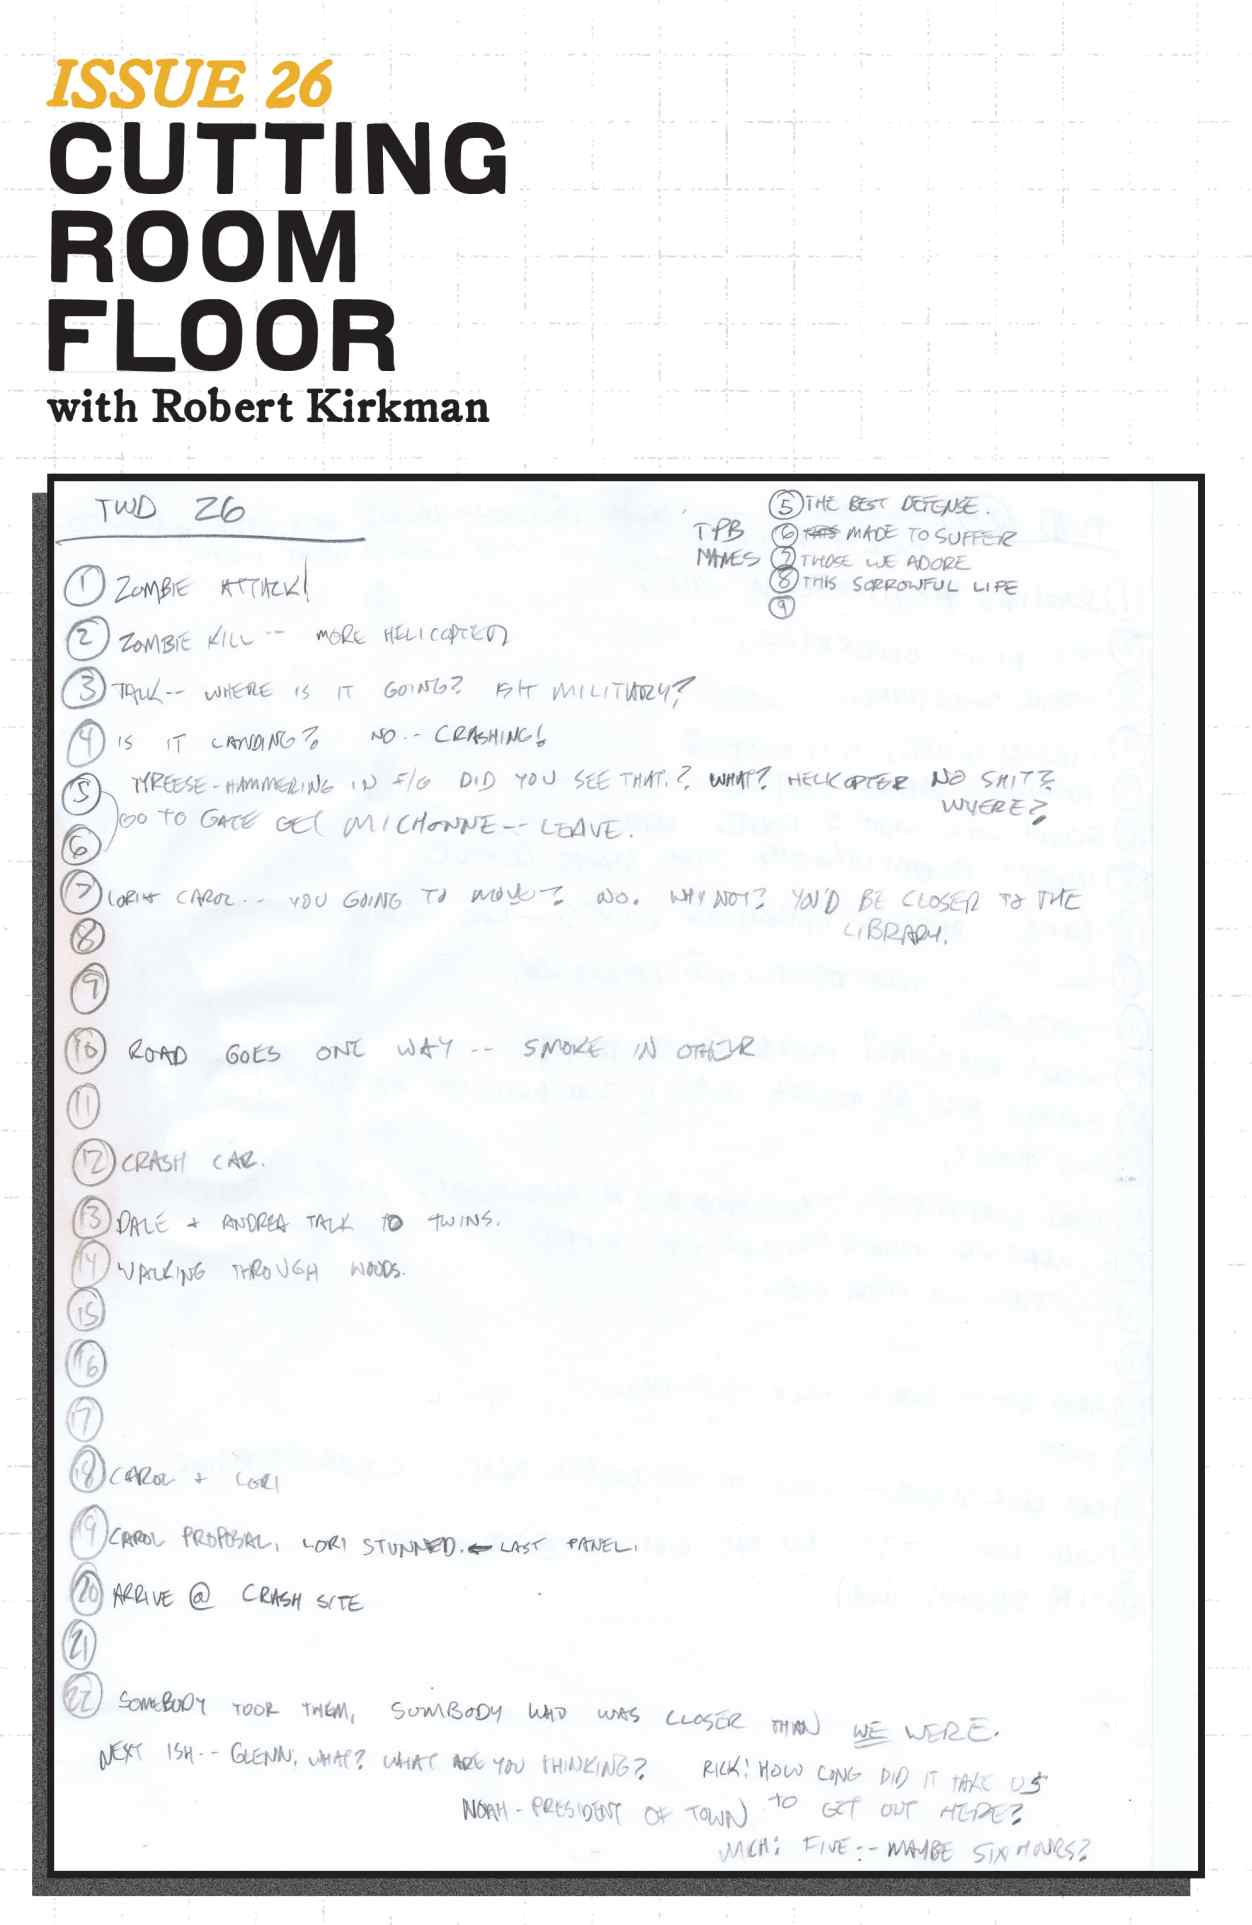 ISSUE 26
CUTTING
ROOM
FLOOR
with Robert Kirkman
TWD 26
TPB NAMES
5 THE BEST DEFENSE.
6 MADE TO SUFFER
7 THOSE WE ADORE
8 THIS SORROWFUL LIFE
9
1 ZOMBIE ATTACK!
2 ZOMBIE KILL -- MORE HELICOPTER
3 TALK -- WHERE IS IT GOING? MILITARY?
4 IS IT LANDING? NO -- CRASHING!
5 TYREESE - HAMMERING IN F/G DID YOU SEE THAT? WHAT? HELICOPTER NO SHIT?
WHERE?
6 GO TO GATE GET MICHONNE -- LEAVE.
7 LORI + CAROL -- YOU GOING TO MOVE? NO. WHY NOT? YOU'D BE CLOSER TO THE
LIBRARY.
8
9
10 ROAD GOES ONE WAY -- SMOKE IN OTHER
11
12 CRASH CAR.
13 DALE + ANDREA TALK TO TWINS.
14 WALKING THROUGH WOODS.
15
16
17
18 CAROL + LORI
19 CAROL PROPOSAL, LORI STUNNED. ← LAST PANEL.
20 ARRIVE @ CRASH SITE
21
22 SOMEBODY TOOK THEM, SUMBODY WHO WAS CLOSER THAN WE WERE.
NEXT ISH -- GLENN, WHAT? WHAT ARE YOU THINKING? RICK: HOW LONG DID IT TAKE US
NOAH - PRESIDENT OF TOWN TO GET OUT HERE?
MICH: FIVE -- MAYBE SIX HOURS?